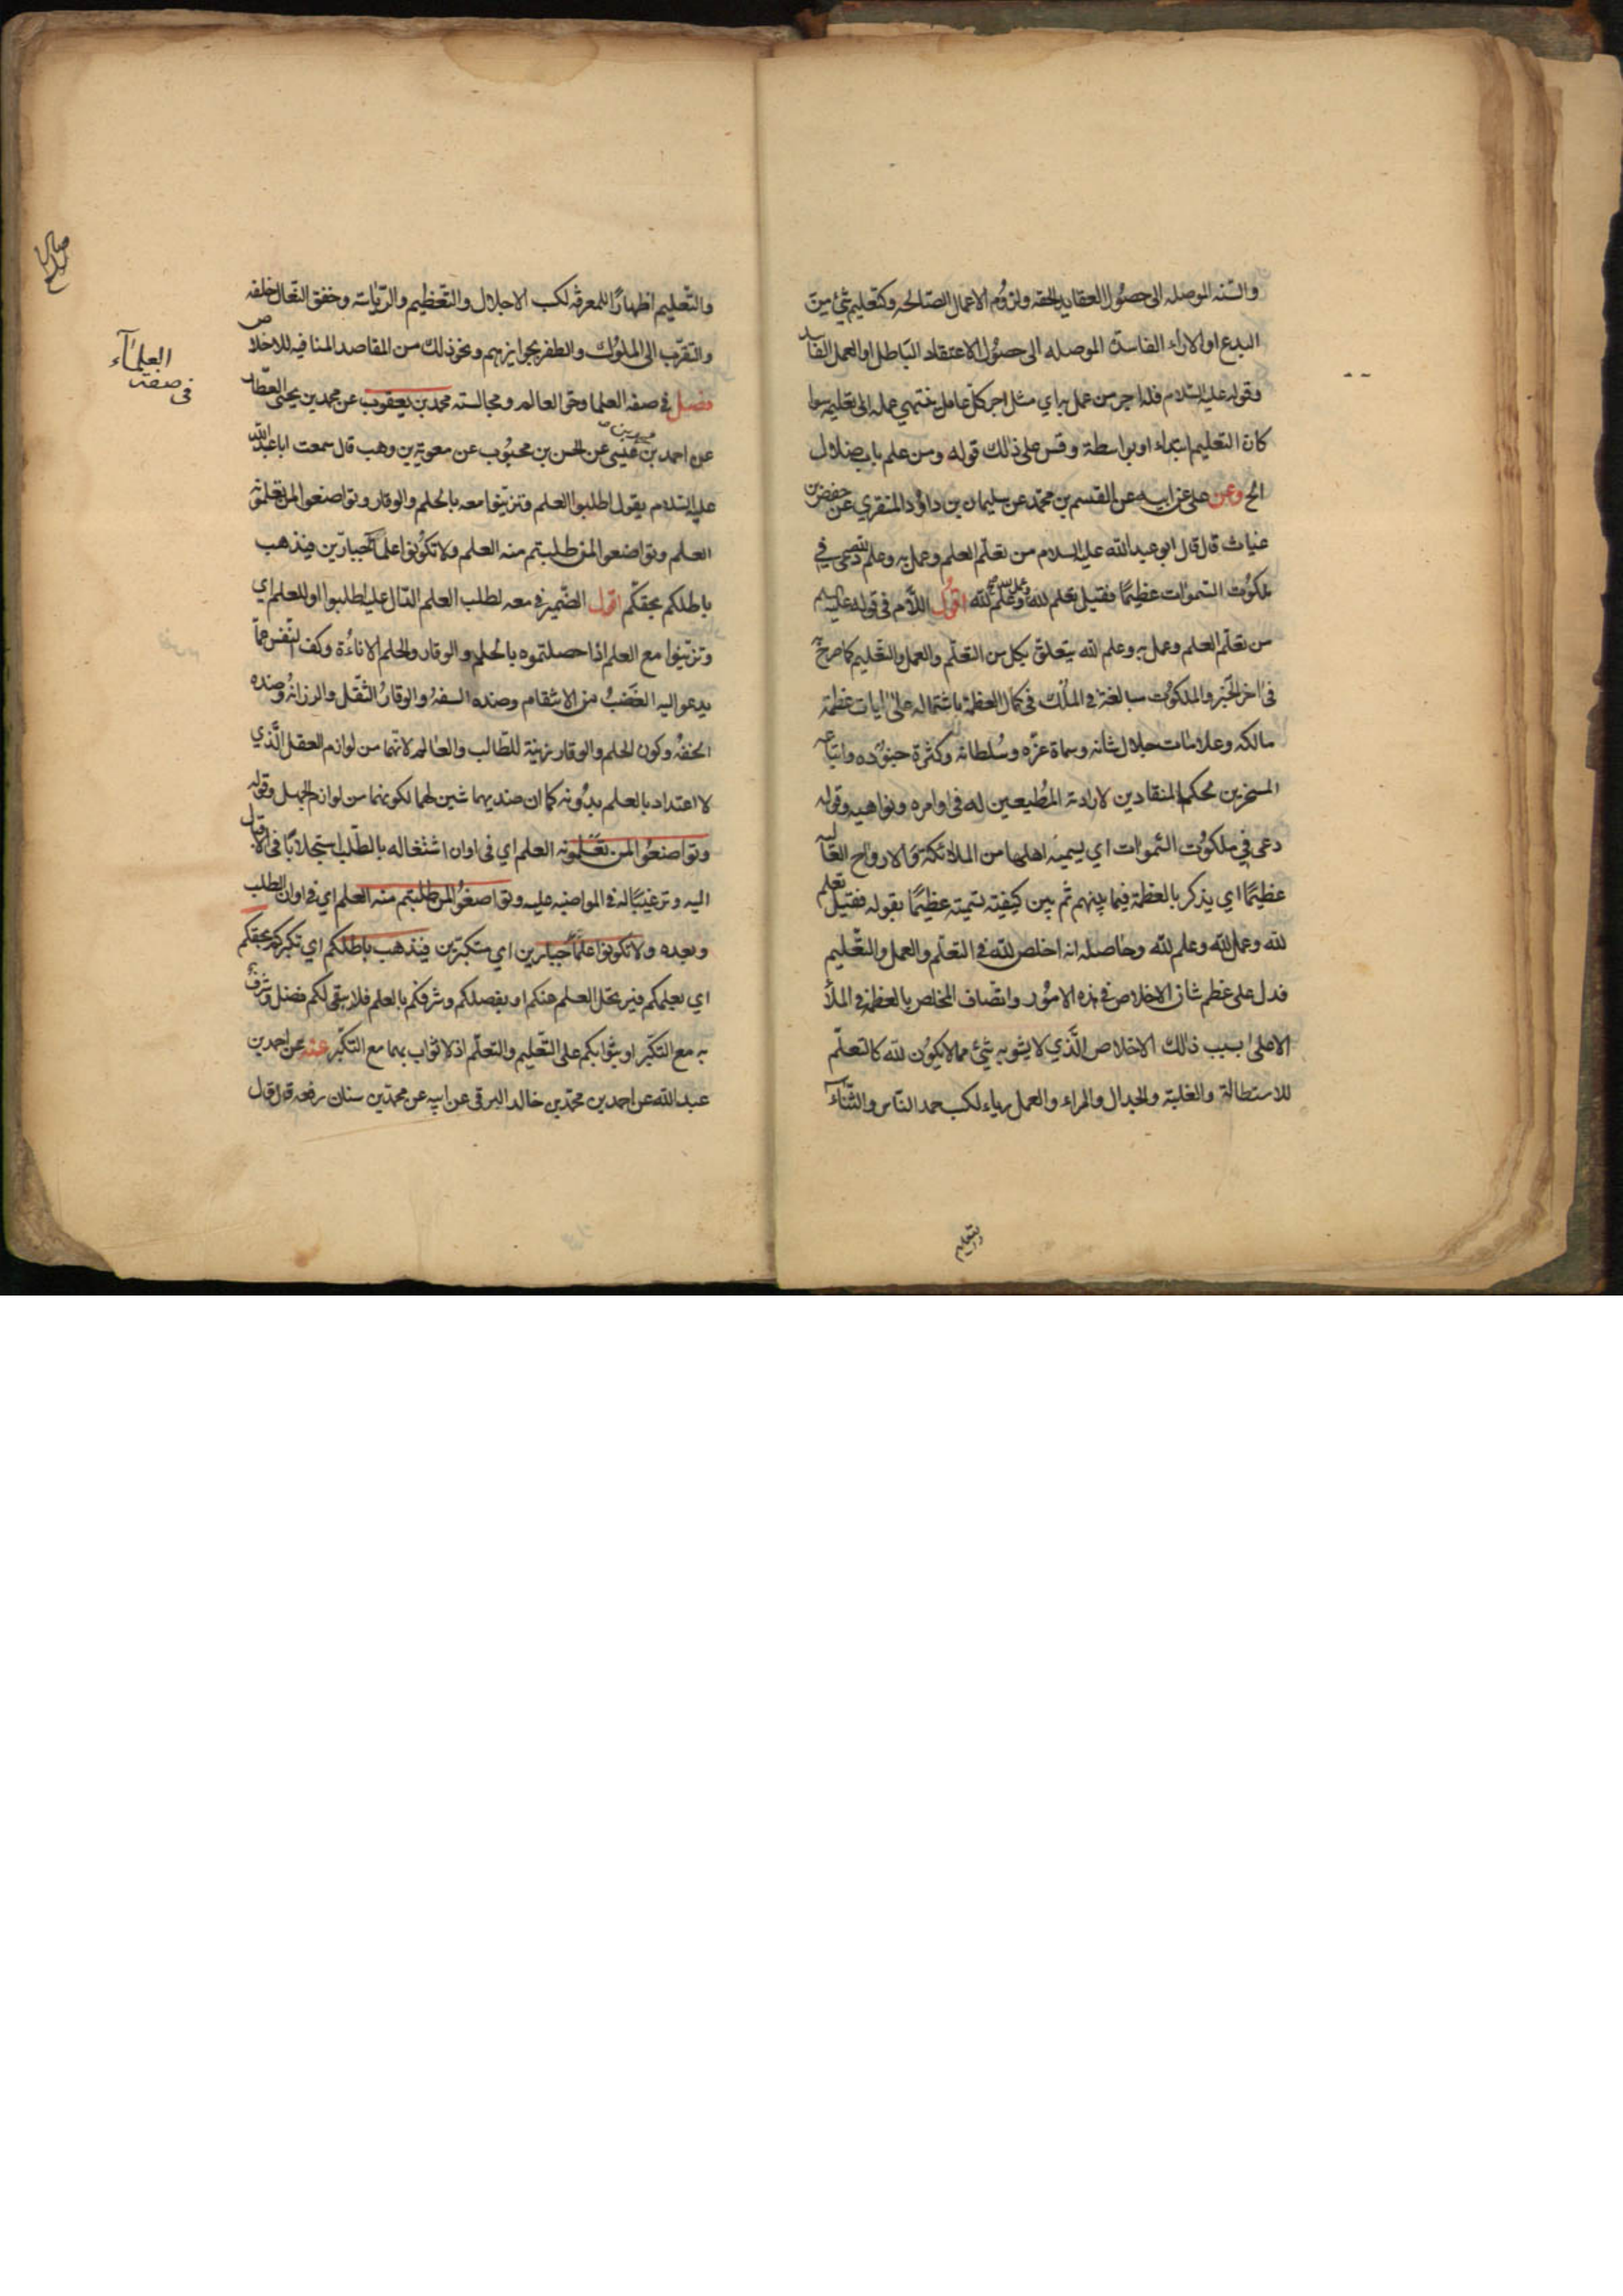 والسنه الموصله الى حصول العقايد الحقه ولزوم الاعمال الصالحه وكتعليم شئ من
البدع او الاراء الفاسدة الموصله الى حصول الاعتقاد الباطل او العمل الفاسد
وقوله عليه السلام فله اجر من عمل به اي مثل اجر كل عامل ينتهي عمله الى تعليمه سوا
كان التعليم ابتداء او بواسطة وقس على ذلك قوله ومن علم باب ضلال
الخ وعن علي عن ابيه عن القسم بن محمد عن سليمان بن داود المنقري عن حفص بن
غياث قال قال ابو عبد الله عليه السلام من تعلم العلم وعمل به وعلم لله دعي في
ملكوت السموات عظيما فقيل تعلم لله وعمل لله وعلم لله اقول اللام في قوله عليه السلم
من تعلم العلم وعمل به وعلم لله يتعلق بكل من التعلم والعمل والتعليم كما صرح به
في اخر الخبر والملكوت مبالغة في الملك في كمال العظمة باشتماله على ايات عظمة
مالكه وعلامات جلال شانه وسماة عزه وسلطانه وكثرة جنوده واتباعه
المسخرين لحكمه المنقادين لارادته المطيعين له في اوامره ونواهيه وقوله
دعي في ملكوت السموات اي يسميه اهلها من الملائكة والارواح العاليه
عظيما اي يذكر بالعظمة فيما بينهم ثم بين كيفيته تسميته عظيما بقوله فقيل تعلم
لله وعمل لله وعلم لله وحاصله انه اخلص لله في التعلم والعمل والتعليم
فدل على عظم شان الاخلاص في هذه الامور واتصاف المخلص بالعظمة في الملأ
الاعلى بسبب ذلك الاخلاص الذي لا يشوبه شئ مما لا يكون لله كالتعلم
للاستطالة والغلبة والجدال والمراء والعمل رياء لكسب حمد الناس والثناء
والتعليم اظهارا للمعرفة لكسب الاجلال والتعظيم والرياسة وخفق النعال خلفه
والتقرب الى الملوك والظفر بجوايزهم ونحو ذلك من المقاصد المنافيه للاخلاص
فصل في صفه العلما وحق العالم ومجالسته محمد بن يعقوب عن محمد بن يحيى العطار
العلمآء
في صفة
عن احمد بن محمد بن عيسى عن الحسن بن محبوب عن معوية بن وهب قال سمعت ابا عبد الله
عليه السلام يقول اطلبوا العلم وتزينوا معه بالحلم والوقار وتواضعوا لمن تعلمونه
العلم وتواضعوا لمن طلبتم منه العلم ولا تكونوا علماء جبارين فيذهب
باطلكم بحقكم اقول الضمير في معه لطلب العلم الدال عليه اطلبوا او للعلم اي
وتزينوا مع العلم اذا حصلتموه بالحلم والوقار والحلم الاناءة وكف النفس عما
يدعو اليه الغضب من الانتقام وضده السفه والوقار الثقل والرزانه وضده
الخفه وكون الحلم والوقار زينة للطالب والعالم لانهما من لوازم العقل الذي
لا اعتداد بالعلم بدونه كما ان ضديهما شين لهما لكونهما من لوازم الجهل وقوله
وتواضعوا لمن تعلمونه العلم اي في اوان اشتغاله بالطلب استجلابا في الاقبال
اليه وترغيبا له في المواضبه عليه وتواضعوا لمن طلبتم منه العلم اي في اوان الطلب
وبعده ولا تكونوا علماء جبارين اي متكبرين فيذهب باطلكم اي تكبركم بحقكم
اي بعلمكم فيرتحل العلم عنكم او بفضلكم وشرفكم بالعلم فلا يبقى لكم فضل وشرف
به مع التكبر او بثوابكم على التعليم والتعلم اذ لا ثواب بهما مع التكبر عنه عن احمد بن
عبد الله عن احمد بن محمد بن خالد البرقي عن ابيه عن محمد بن سنان رفعه قال قال